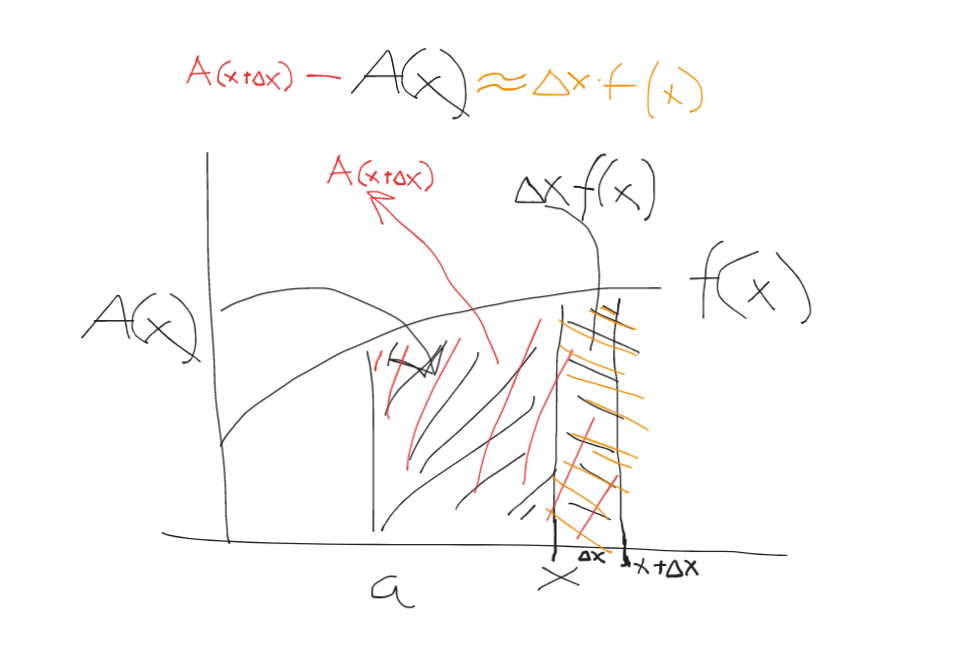 A(x+Δx) − A(x) ≈ Δx·f(x)
A(x+Δx)
Δx f(x)
f(x)
A(x)
Δx
x+Δx
x
a